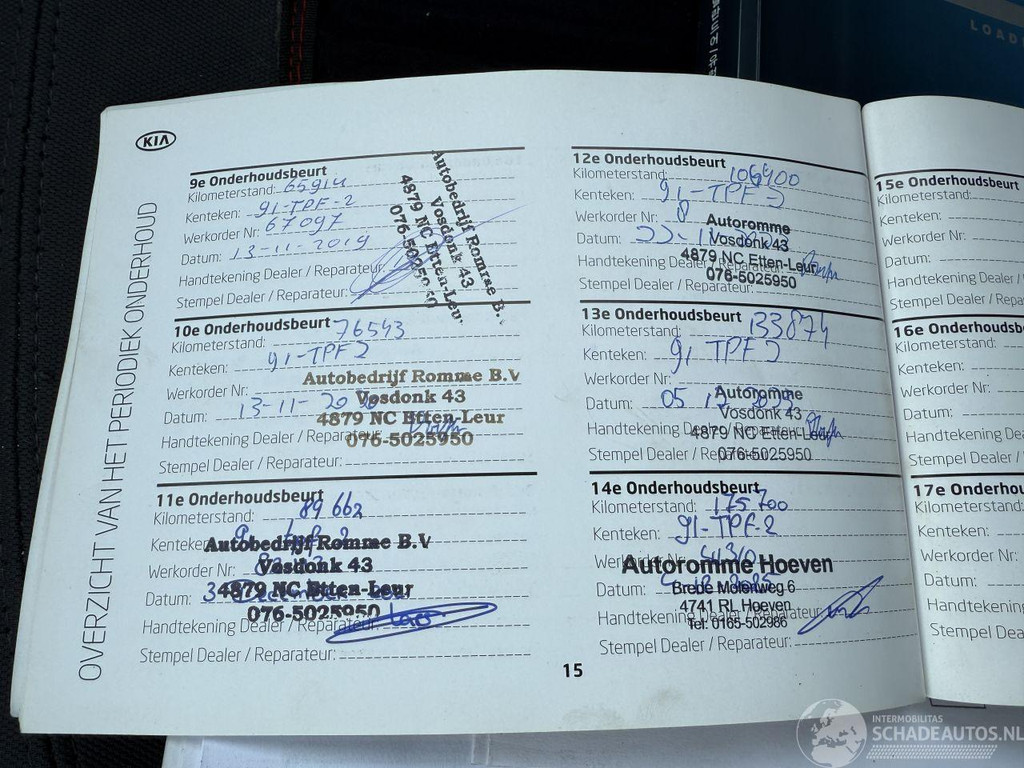 LOAD
KIA
OVERZICHT VAN HET PERIODIEK ONDERHOUD
9e Onderhoudsbeurt
Kilometerstand: 65914
Kenteken: 91-TPF-2
Werkorder Nr: 67097
Datum: 13-11-2019
Handtekening Dealer / Reparateur:
Stempel Dealer / Reparateur:
Autobedrijf Romme B.V
Vosdonk 43
4879 NC Etten-Leur
076-5025950
10e Onderhoudsbeurt
Kilometerstand: 76543
Kenteken: 91-TPF2
Werkorder Nr:
Datum: 13-11-20
Handtekening Dealer / Reparateur:
Stempel Dealer / Reparateur:
Autobedrijf Romme B.V
Vosdonk 43
4879 NC Etten-Leur
076-5025950
11e Onderhoudsbeurt
Kilometerstand: 89662
Kenteken:
Werkorder Nr:
Datum: 3
Handtekening Dealer / Reparateur:
Stempel Dealer / Reparateur:
Autobedrijf Romme B.V
Vosdonk 43
4879 NC Etten-Leur
076-5025950
12e Onderhoudsbeurt
Kilometerstand:
Kenteken: 91-TPF-2
Werkorder Nr:
Datum:
Handtekening Dealer / Reparateur:
Stempel Dealer / Reparateur:
Autoromme
Vosdonk 43
4879 NC Etten-Leur
076-5025950
13e Onderhoudsbeurt
Kilometerstand: 133874
Kenteken: 91 TPF 2
Werkorder Nr:
Datum: 05
Handtekening Dealer / Reparateur:
Stempel Dealer / Reparateur:
Autoromme
Vosdonk 43
4879 NC Etten-Leur
076-5025950
14e Onderhoudsbeurt
Kilometerstand: 175700
Kenteken: 91-TPF-2
Werkorder Nr:
Datum:
Handtekening Dealer / Reparateur:
Stempel Dealer / Reparateur:
Autoromme Hoeven
Brede Molenweg 6
4741 RL Hoeven
Tel: 0165-502986
15
15e Onderhoudsbeurt
Kilometerstand:
Kenteken:
Werkorder Nr:
Datum:
Handtekening Dealer
Stempel Dealer / Repara
16e Onderhoudsb
Kilometerstand:
Kenteken:
Werkorder Nr:
Datum:
Handtekening Deale
Stempel Dealer / Rep
17e Onderhou
Kilometerstand:
Kenteken:
Werkorder Nr:
Datum:
Handtekening
Stempel Dealer
INTERMOBILITAS
SCHADEAUTOS.NL